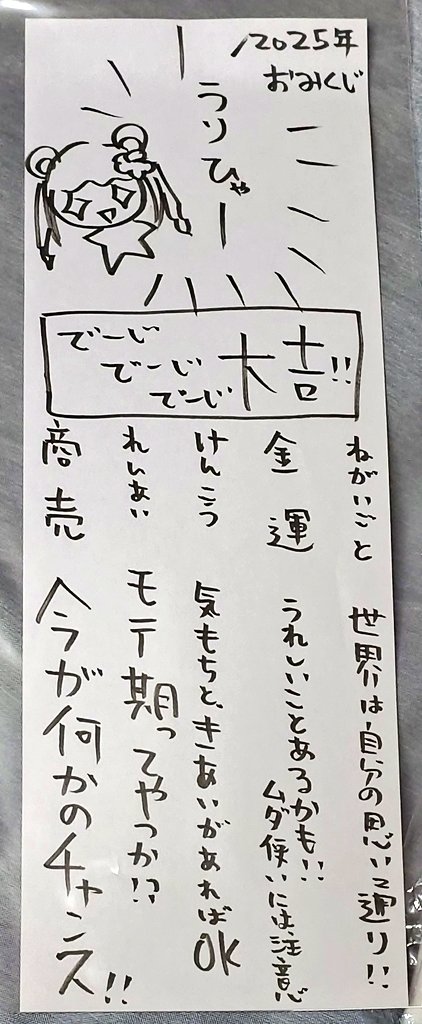 2025年
おみくじ
うりひゃー
でーじ
でーじ
でーじ大吉!!
ねがいごと 世界は自分の思い通り!!
金運 うれしいことあるかも!!
ムダ使いには、注意
けんこう 気もちと、きあいがあればOK
れんあい モテ期ってやつか!?
商売 今が何かのチャンス!!